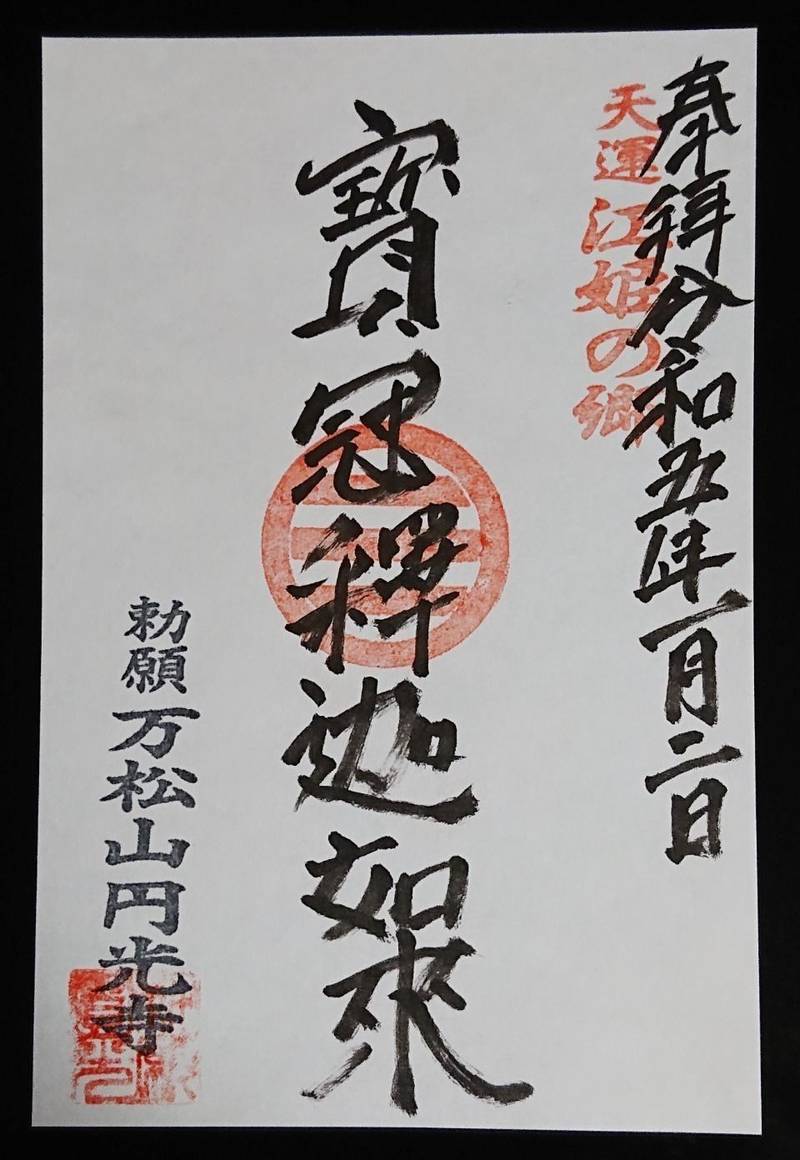 奉拝令和五年一月二日
天運江姫の郷
寳冠釋迦如來
勅願万松山円光寺